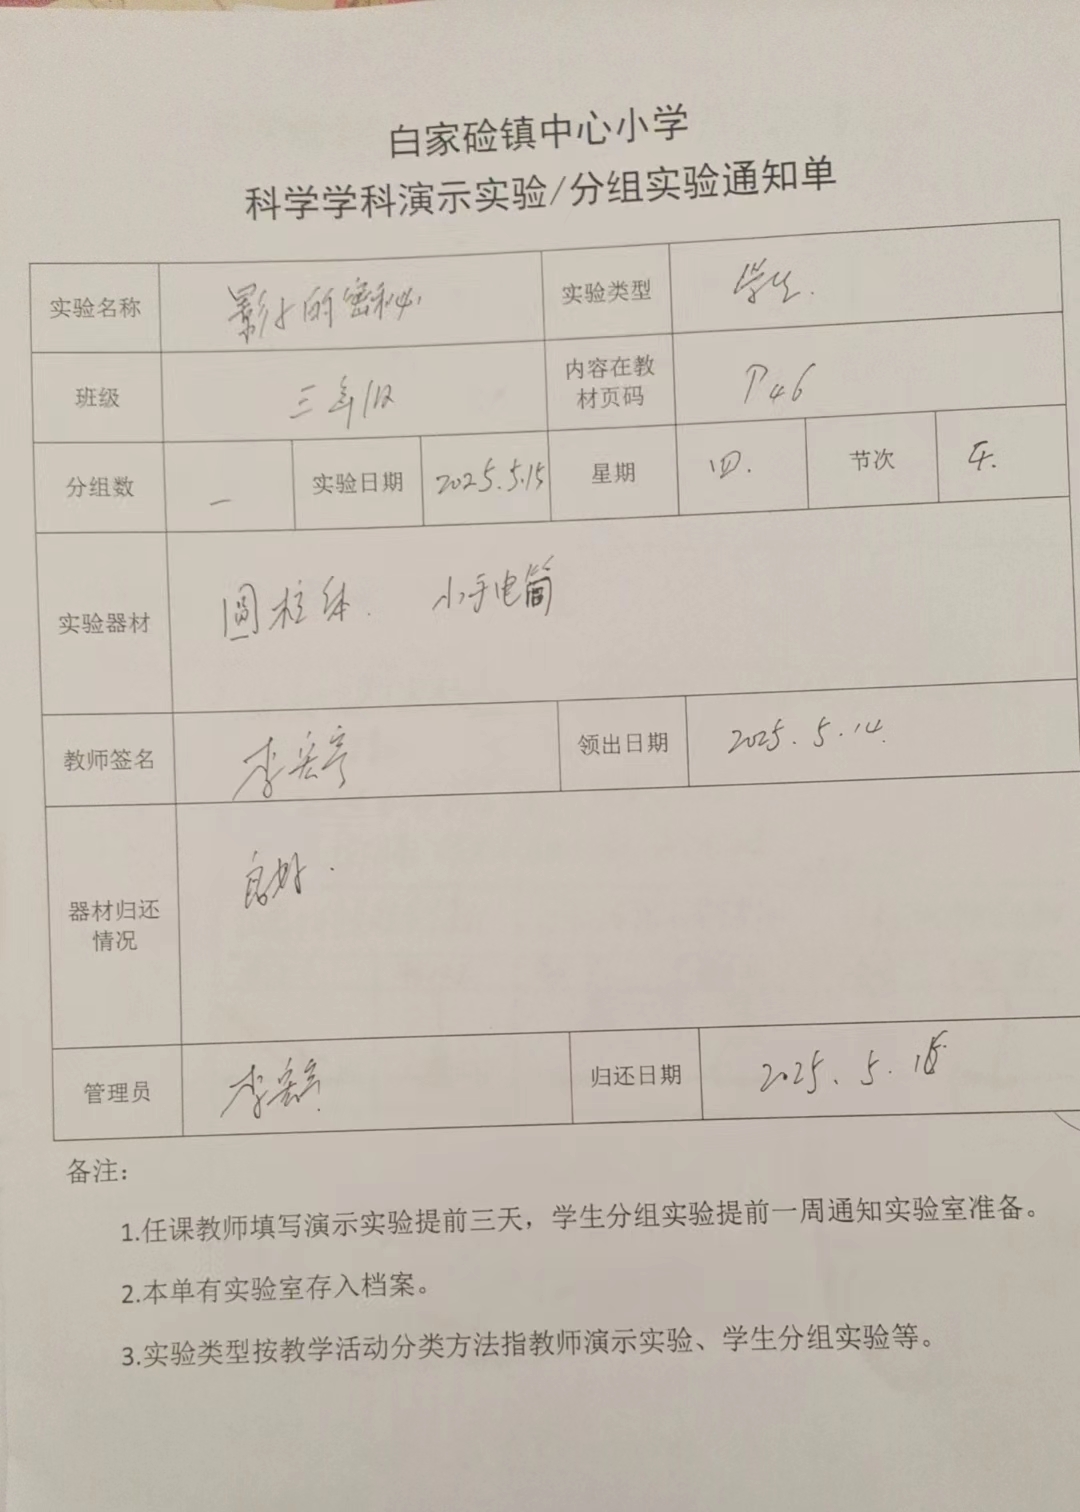 白家硷镇中心小学
科学学科演示实验/分组实验通知单
实验名称 影子的密秘 实验类型 学生.
班级 三年级 内容在教材页码 P46
分组数 一 实验日期 2025.5.15 星期 四. 节次
实验器材 圆柱体. 小手电筒
教师签名 李 领出日期 2025.5.14.
器材归还情况 良好.
管理员 李 归还日期 2025.5.15
备注：
1.任课教师填写演示实验提前三天，学生分组实验提前一周通知实验室准备。
2.本单有实验室存入档案。
3.实验类型按教学活动分类方法指教师演示实验、学生分组实验等。